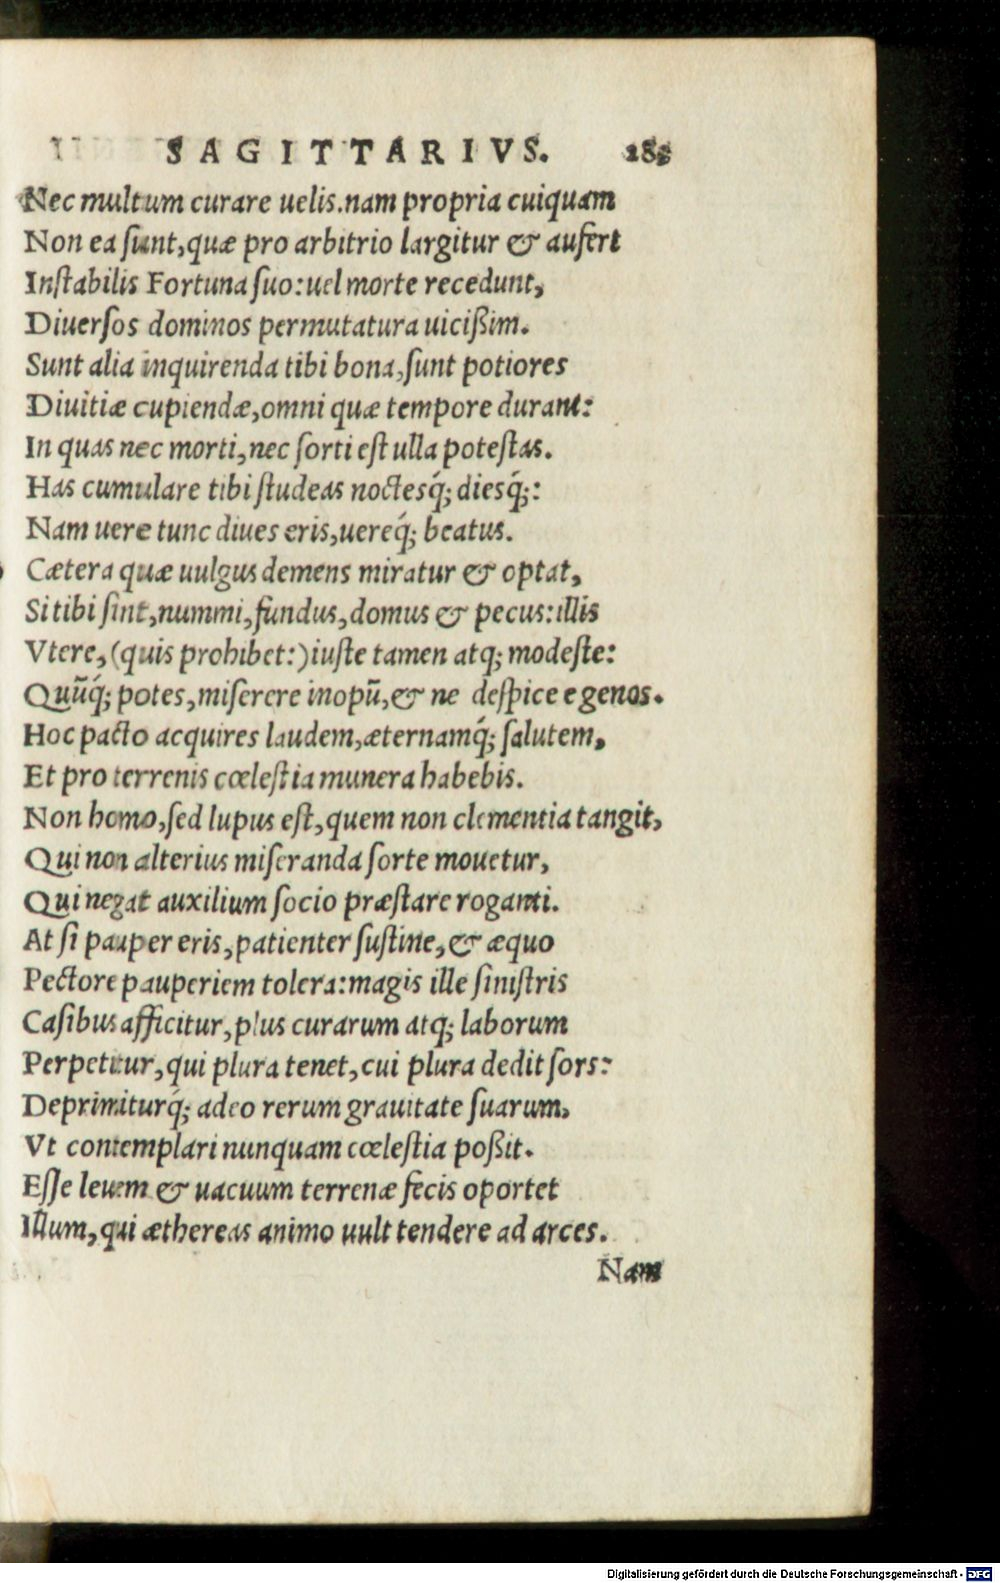 SAGITTARIVS.
Nec multum curare uelis.nam propria cuiquam
Non ea ſunt,quæ pro arbitrio largitur & aufert
Inſtabilis Fortuna ſuo:uel morte recedunt,
Diuerſos dominos permutatura uicißim.
Sunt alia inquirenda tibi bona,ſunt potiores
Diuitiæ cupiendæ,omni quæ tempore durant:
In quas nec morti,nec ſorti eſt ulla poteſtas.
Has cumulare tibi ſtudeas noctesq́; diesq́;:
Nam uere tunc diues eris,uereq́; beatus.
Cætera quæ uulgus demens miratur & optat,
Si tibi ſint,nummi,fundus,domus & pecus:illis
Vtere,(quis prohibet:)iuſte tamen atq; modeſte:
Quũq́; potes,miſerere inopũ,& ne deſpice egenos.
Hoc pacto acquires laudem,æternamq́; ſalutem,
Et pro terrenis cœleſtia munera habebis.
Non homo,ſed lupus eſt,quem non clementia tangit,
Qui non alterius miſeranda ſorte mouetur,
Qui negat auxilium ſocio præſtare roganti.
At ſi pauper eris,patienter ſuſtine,& æquo
Pectore pauperiem tolera:magis ille ſiniſtris
Caſibus afficitur,plus curarum atq; laborum
Perpetitur,qui plura tenet,cui plura dedit ſors:
Deprimiturq́; adeo rerum grauitate ſuarum,
Vt contemplari nunquam cœleſtia poßit.
Eſſe leuem & uacuum terrenæ fecis oportet
Illum,qui æthereas animo uult tendere ad arces.
Nam
Digitalisierung gefördert durch die Deutsche Forschungsgemeinschaft - DFG